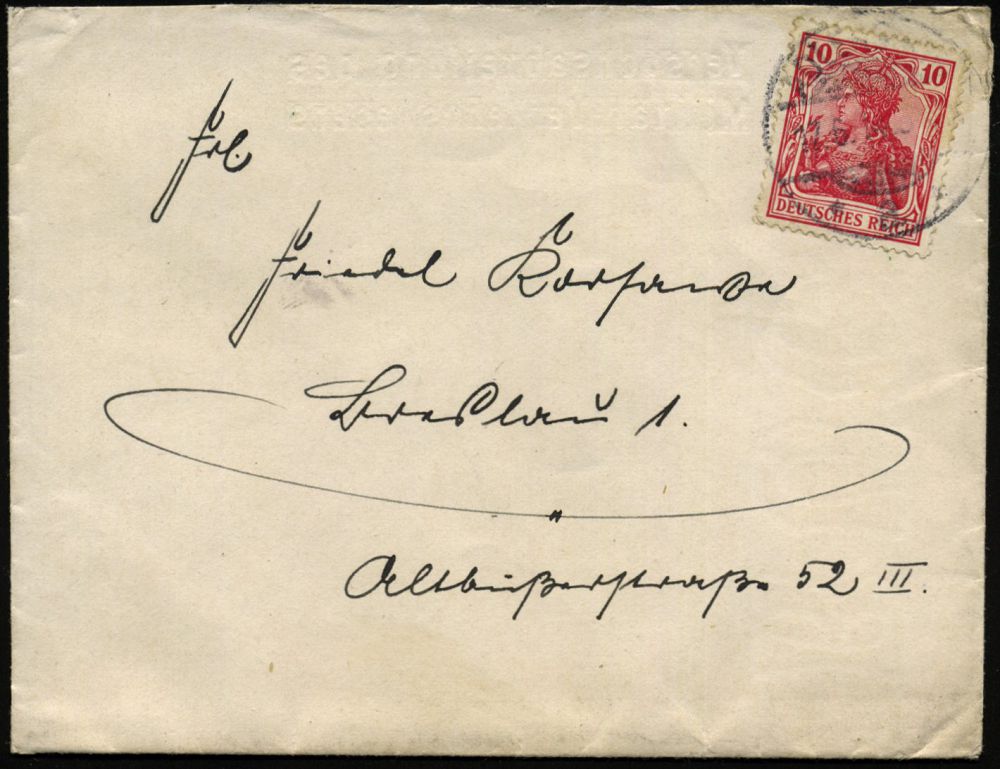 10 10
DEUTSCHES REICH
Frl.
Friedel
Breslau 1.
Altbüßerstraße 52 III.